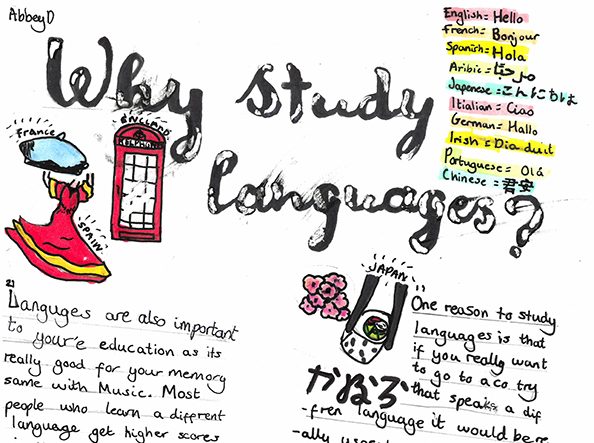 AbbeyD
Why study
languages?
English = Hello
French = Bonjour
Spanish = Hola
Aribic = مرحبا
Japenese = こんにちは
Itialian = Ciao
German = Hallo
Irish = Dia duit
Portuguese = Olá
Chinese = 君安
France
ENGLAND
SPAIN
JAPAN
Languges are also important
to your'e education as its
really good for your memory
same with Music. Most
people who learn a different
language get higher scores
One reason to study
languages is that
if you really want
to go to a co try
that speaks a dif
-fren language it would be re
-ally